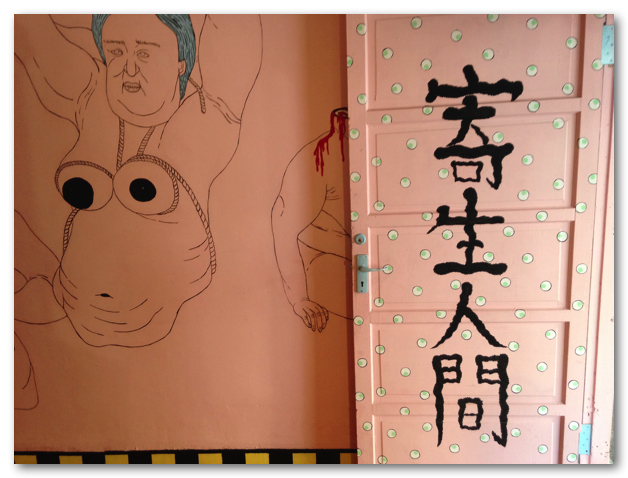 寄生人間